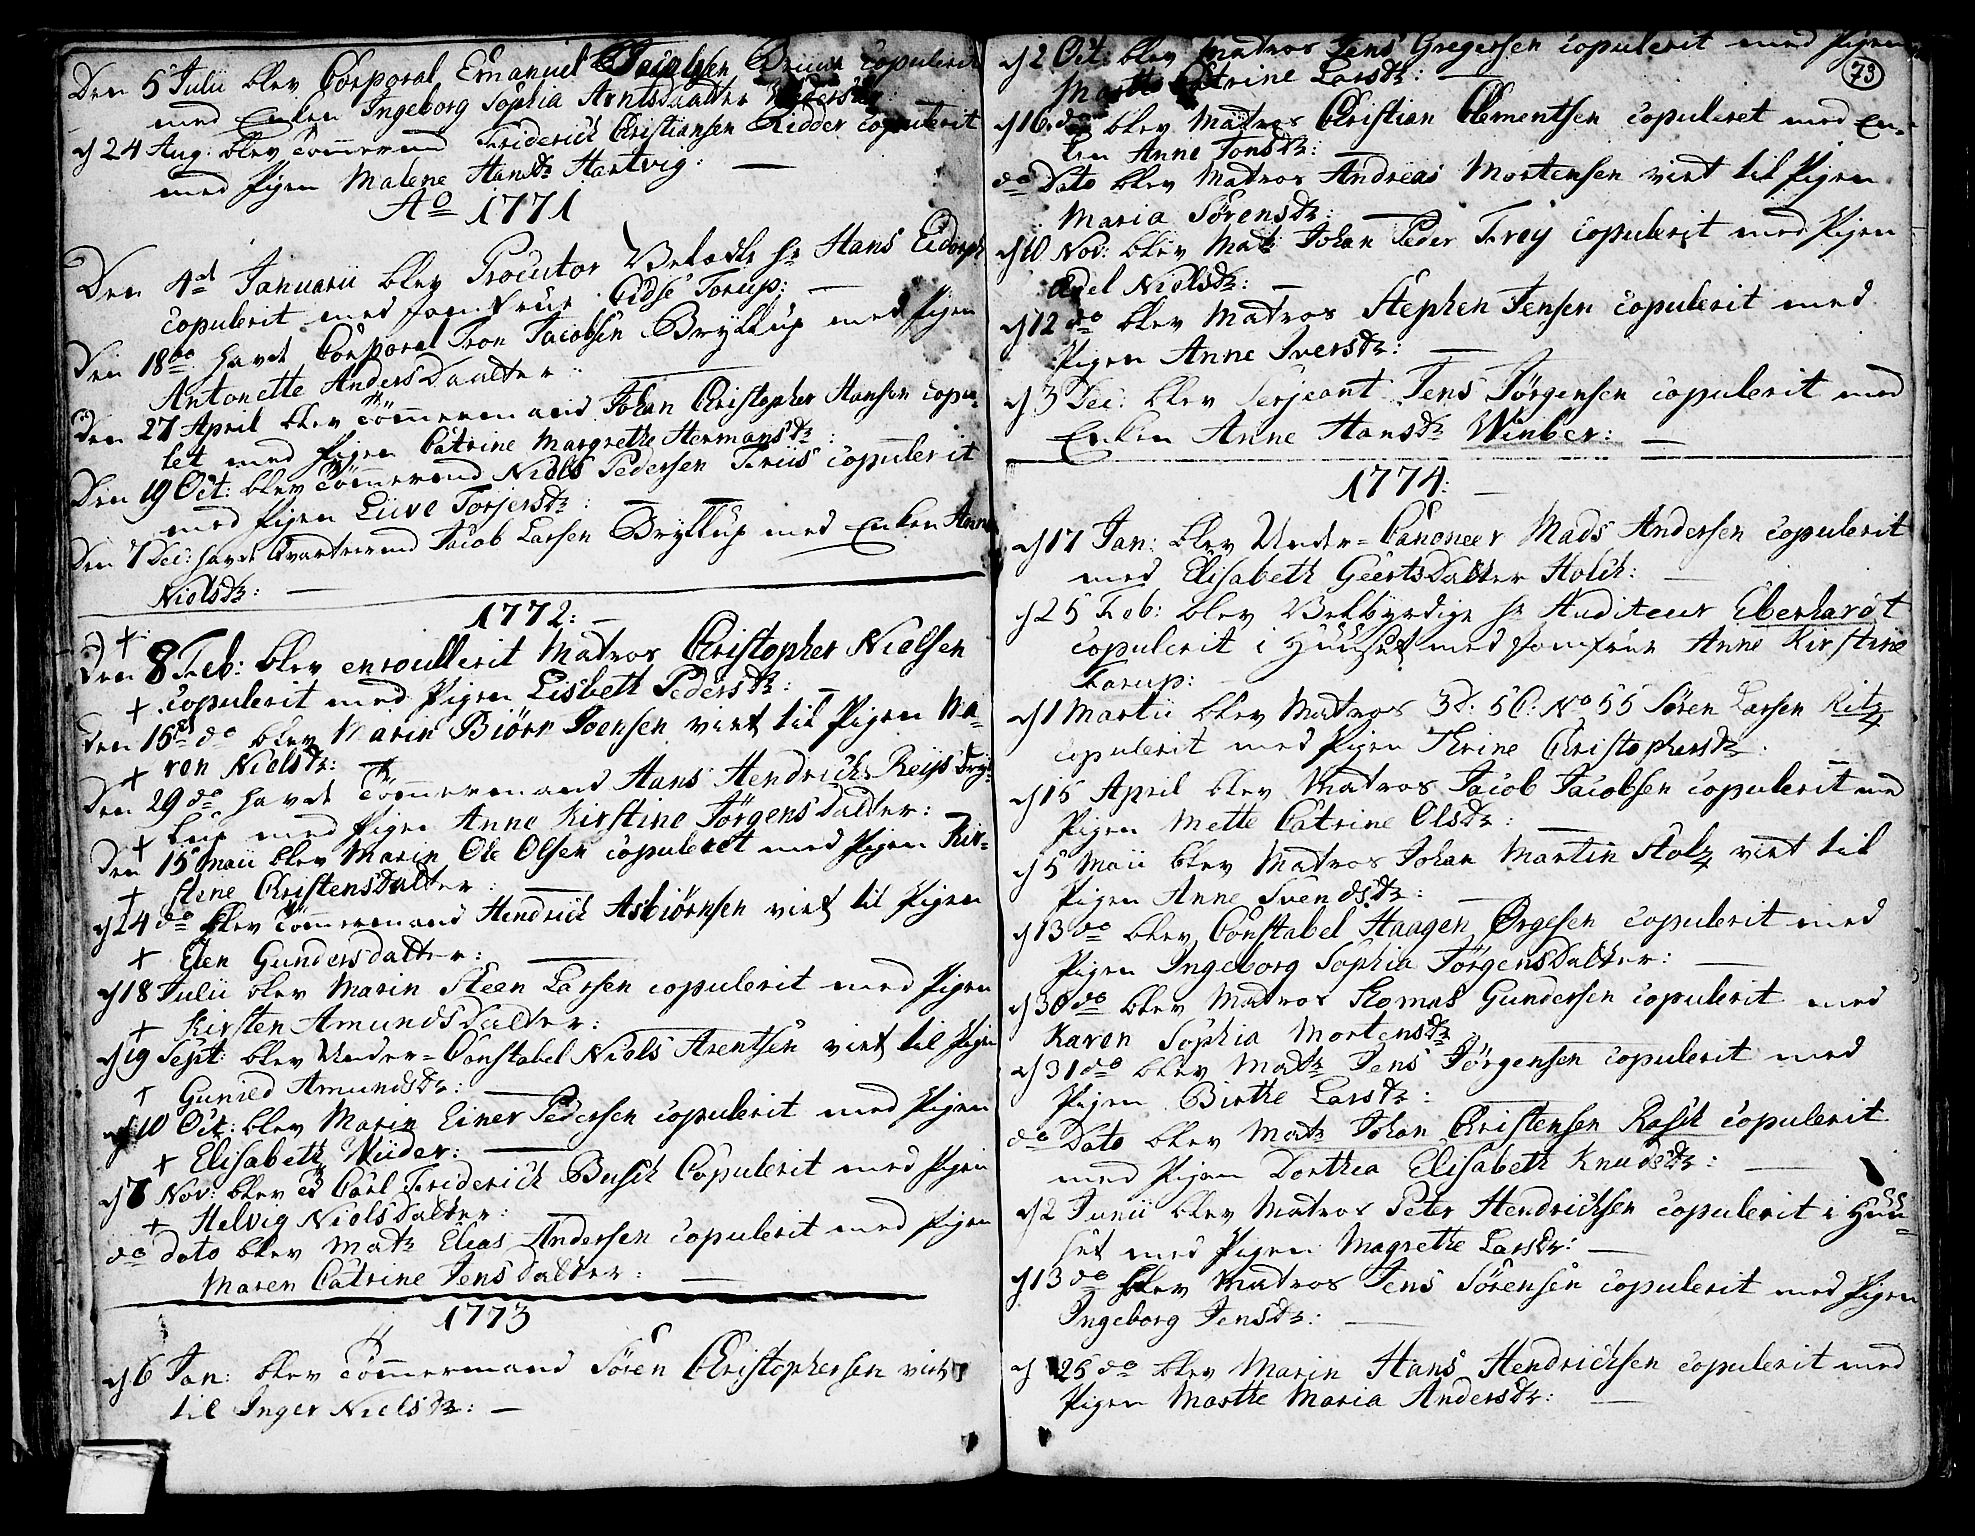 Den 5 Julii blev Corporal Emanuel Jacobsen Bruun copulerit
med Enken Ingeborg Sophia Arntsdaatter
d 24 Aug: blev Tömermd Friderich Christiansen Ridder copulerit
med Pigen Malene Hansdr Hartvig:
Ao 1771
Den 4de Januarii blev Procutor Velædle hr Hans Eidorph
copulerit med Jomfrue Eidse Torup:
Den 18do havde Corporal Iron Jacobsen Bryllup med Pigen
Antonette Anders Daatter
Den 27 April blev Tömermand Johan Christopher Hansen copu-
let med Pigen Catrine Margrethe Hermansdr:
Den 19 Oct: blev Tömermd Niels Pedersen Friis copulerit
med Pigen Live Torjersdr:
Den 7 Dec: havde Qvartermd Jacob Larsen Bryllup med Enken Anne
Nielsdr:
1772:
Den 8 Feb: blev enroullerit Matros Christopher Nielsen
copulerit med Pigen Lisbeth Pedersdr:
Den 15de do blev Marin Biörn Joensen viet til Pigen Ma-
ren Nielsdr:
Den 29 do havde Tömermand Hans Hendrich Reiss Bryl-
lup med Pigen Anne Kirstine Jörgensdatter:
Den 15 Maii blev Marin Ole Olsen copuleret med Pigen Kir-
stene Christensdatter:
d 24 do blev Tömermand Hendrich Asbiörnsen viet til Pigen
Elen Gundersdatter:
d 18 Julii blev Marin Steen Larsen copulerit med Pigen
Kirsten Amundsdatter:
d 19 Sept: blev Under-Constabel Niels Arentsen viet til Pigen
Gunild Amundsdr:
d 10 Oct: blev Marin Einer Pedersen copulerit med Pigen
Elisabeth Müder:
d 7 Nov: blev Carl Friderich Busch Copulerit med Pigen
Helvig Nielsdatter:
do dato blev Matr Elias Andersen copulerit med Pigen
Maren Catrine Jensdatter:
1773
d 6 Jan: blev Tömermand Sören Christophersen viet
til Inger Nielsdr:
73
d 2 Oct: blev Matros Jens Gregersen copulerit med Pigen
Marthe Catrine Larsdr:
d 16 do blev Matros Christian Clementsen copuleret med En-
ken Anne Tonsdr:
do Dato blev Matros Andreas Mortensen viet til Pigen
Maria Sörensdr:
d 10 Nov: blev Matr Johan Peder Frey copulerit med Pigen
Edel Nielsdr:
d 12 do blev Matros Stephen Jensen copulerit med
Pigen Anne Iversdr:
d 3 Dec: blev Serjeant Jens Jörgensen copulerit med
Enken Anne Hansdr Winber:
1774:
d 17 Jan: blev Under-Canoneer Mads Andersen copulerit
med Elisabeth Geertsdatter Holch:
d 25 Feb: blev Velbyrdige hr Auditeur Eberhardt
copulerit i Huuset med Jomfrue Anne Kirstine
Torup:
d 1 Martii blev Matros 3d. 5C. No 55 Sören Larsen Ritz
copulerit med Pigen Thrine Christophersdr
d 15 April blev Matros Jacob Jacobsen copulerit med
Pigen Mette Catrine Olsdr:
d 5 Maii blev Matros Johan Martin Stolz viet til
Pigen Anne Svendsdr:
d 13 do blev Constabel Haagen Ørgesen copulerit med
Pigen Ingeborg Sophia Jörgensdatter:
d 30 do blev Matros Thomas Gundersen copulerit med
Karen Sophia Mortensdr
d 31 do blev Matr Jens Jörgensen copulerit med
Pigen Birthe Larsdr:
do Dato blev Matr Johan Christensen Rasch copulerit
med Pigen Dorthea Elisabeth Knudsdr:
d 2 Junii blev Matros Peter Hendrichsen copulerit i Huu-
set med Pigen Magrethe Larsdr:
d 13 do blev Matros Jens Sörensen copulerit med Pigen
Ingeborg Jensdr:
d 25 do blev Marin Hans Hendrichsen copulerit med
Pigen Marthe Maria Andersdr: